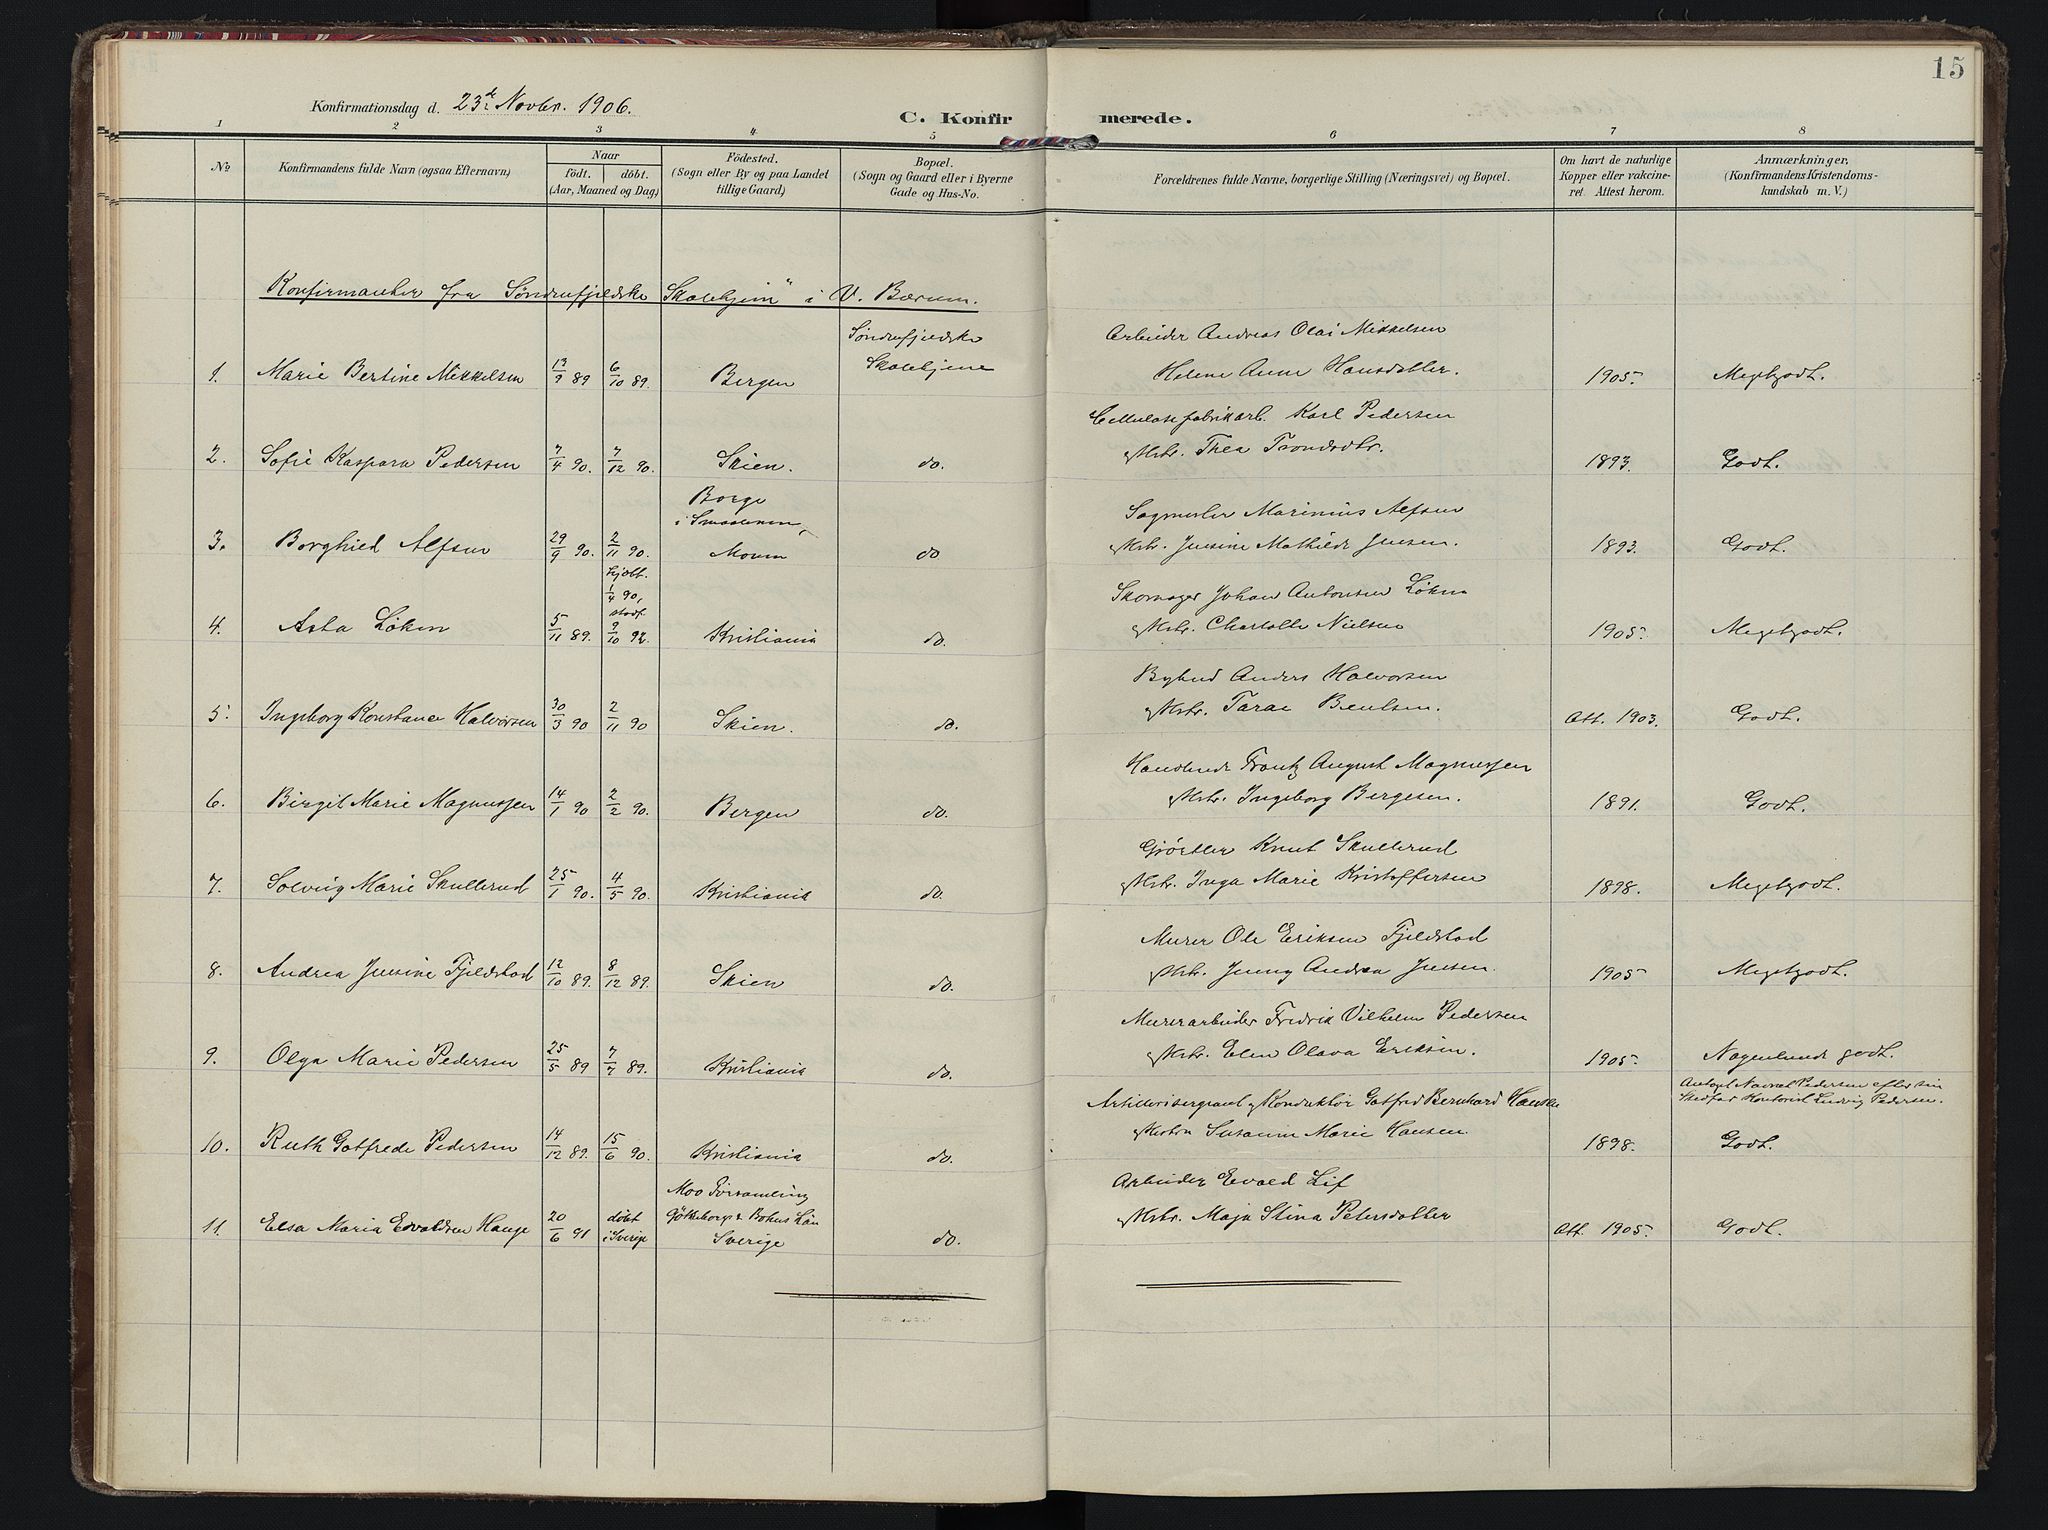 15
Konfirmationsdag d. 23de Novbr. 1906.
C. Konfirmerede.
1 2 3 4 5 6 7 8
No
Konfirmandens fulde Navn (ogsaa Efternavn)
Naar
födt. döbt.
(Aar, Maaned og Dag)
Födested.
(Sogn eller By og paa Landet
tillige Gaard)
Bopæl.
(Sogn og Gaard eller i Byerne
Gade og Hus-No.
Forældrenes fulde Navne, borgerlige Stilling (Næringsvei) og Bopæl.
Om havt de naturlige
Kopper eller vakcine-
ret. Attest herom.
Anmærkninger.
(Konfirmandens Kristendoms-
kundskab m. V.)
Konfirmanter fra Søndenfjeldske Skolehjem" i V. Bærum.
Søndenfjeldske
Arbeider Andreas Olai Mikkelsen
1. Marie Bertine Mikkelsen 13/9 89 6/10 89. Bergen Skolehjem Helene Anne Hansdatter. 1905. Megetgodt.
Cellulosefabrikarb. Karl Pedersen
2. Sofie Kaspara Pedersen 7/4 90. 7/12 90. Skien. do. og Hstr. Thea Trondsdtr. 1893. Godt.
Borge
i Smaalenene,
Sagmester Marinius Alfsen
3. Borghild Alfsen 29/9 90. 2/11 90. Moum do og Hstr. Jensine Mathilde Jensen. 1893. Godt.
hjdbt.
1/4 90,
stadf.
Skomager Johan Antonsen Löken
4. Asta Löken 5/11 89. 9/10 92. Kristiania do. og Hstr. Charlotte Nielsen 1905. Megetgodt.
Bybud Anders Halvorsen
5. Ingeborg Konstance Halvorsen 30/3 90 2/11 90 Skien. do. og Hstr. Taran Bentsen. Att. 1903. Godt.
Handlende Frantz August Magnussen
6. Birgit Marie Magnussen 14/1 90 2/2 90. Bergen do. og Hstr. Ingeborg Bergesen. 1891. Godt.
Gjörtler Knut Skullerud
7. Solveig Marie Skullerud 25/1 90. 4/5 90. Kristiania do. og Hstr. Inga Marie Kristoffersen 1898. Megetgodt.
Murer Ole Eriksen Fjeldstad
8. Andrea Jensine Fjeldstad 12/10 89. 8/12 89. Skien do. og Hstr. Jenny Andrea Jensen. 1905 Megetgodt.
Murerarbeider Fredrik Vilhelm Pedersen
9. Olga Marie Pedersen 25/5 89 7/7 89. Kristiania do. og Hstr. Elen Olava Eriksen. 1905. Nogenlunde godt.
Antaget Navnet Pedersen efter sin
Stedfar Kontorist Ludvig Pedersen.
Artillerisergeant og Konduktør Gotfred Bernhard Hansen
10. Ruth Gotfrede Pedersen 14/12 89. 15/6 90. Kristiania do. og Hustru Susanne Marie Hansen. 1898. Godt.
Moo Forsamling
Göteborgs & Bohus Län
Sverige
Arbeider Evald Lif
11. Elsa Maria Evaldsen Hauge 20/6 91 döbt i Sverige do. og Hstr. Maja Stina Petersdatter Att. 1905. Godt.